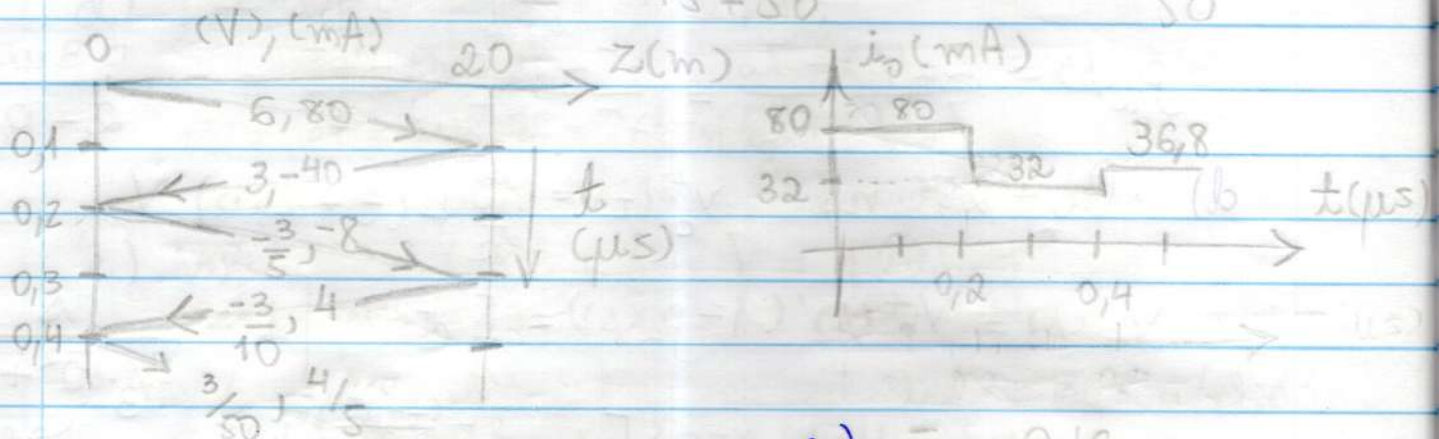 0 (V), (mA) 20 Z(m)
6, 80
0,1
3, -40
0,2
-3/5, -8
0,3
-3/10, 4
0,4
3/50, 4/5
t
(µs)
i₀(mA)
80 80
36,8
32 32
t(µs)
0,2 0,4